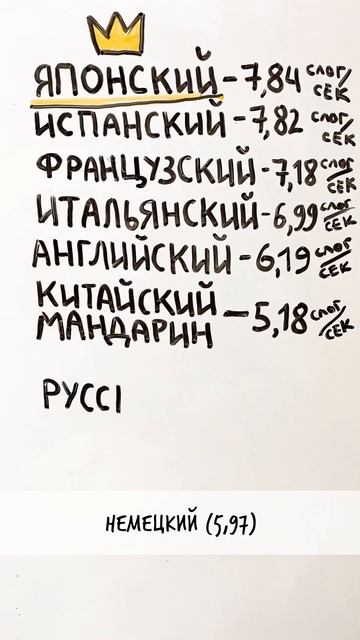 ЯПОНСКИЙ - 7,84 слог/сек
ИСПАНСКИЙ - 7,82 слог/сек
ФРАНЦУЗСКИЙ - 7,18 слог/сек
ИТАЛЬЯНСКИЙ - 6,99 слог/сек
АНГЛИЙСКИЙ - 6,19 слог/сек
КИТАЙСКИЙ
МАНДАРИН — 5,18 слог/сек
РУССІ
НЕМЕЦКИЙ (5,97)